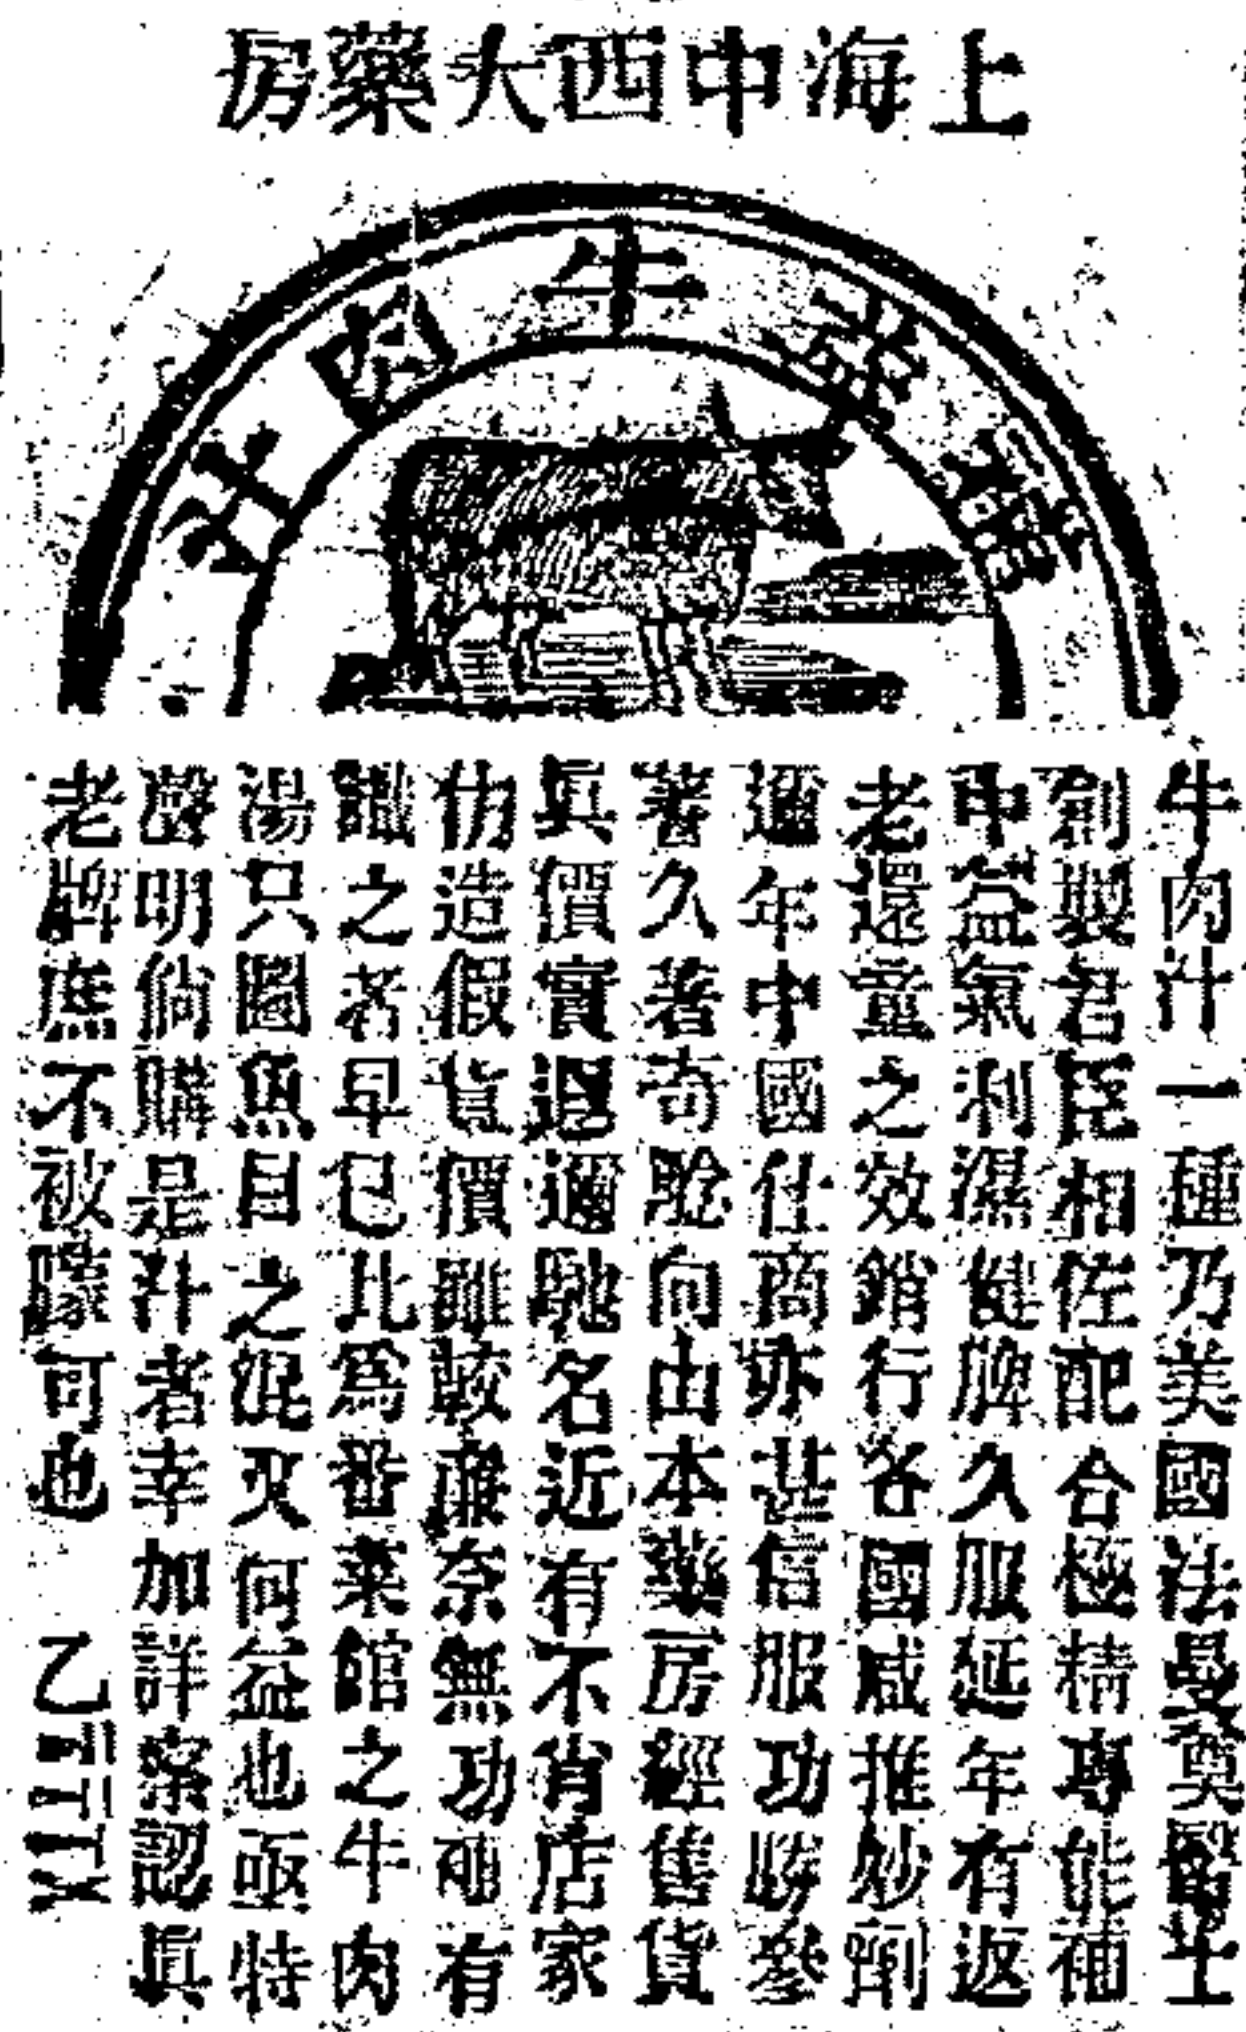 上海中西大藥房
牛肉汁
牛肉汁一種乃美國法曼奠醫士
創製君臣相佐配合極精專能補
中益氣利濕健脾久服延年有返
老還童之效銷行各國咸推妙劑
邇年中國仕商亦甚信服功勝參
蓍久著奇騐向由本藥房經售貨
眞價實遐邇馳名近有不肖店家
仿造假貨價雖較廉奈無功補有
識之者早已比爲番菜館之牛肉
湯只圖魚目之混又何益也亟特
聲明倘購是汁者幸加詳察認眞
老牌庶不被矇可也 乙